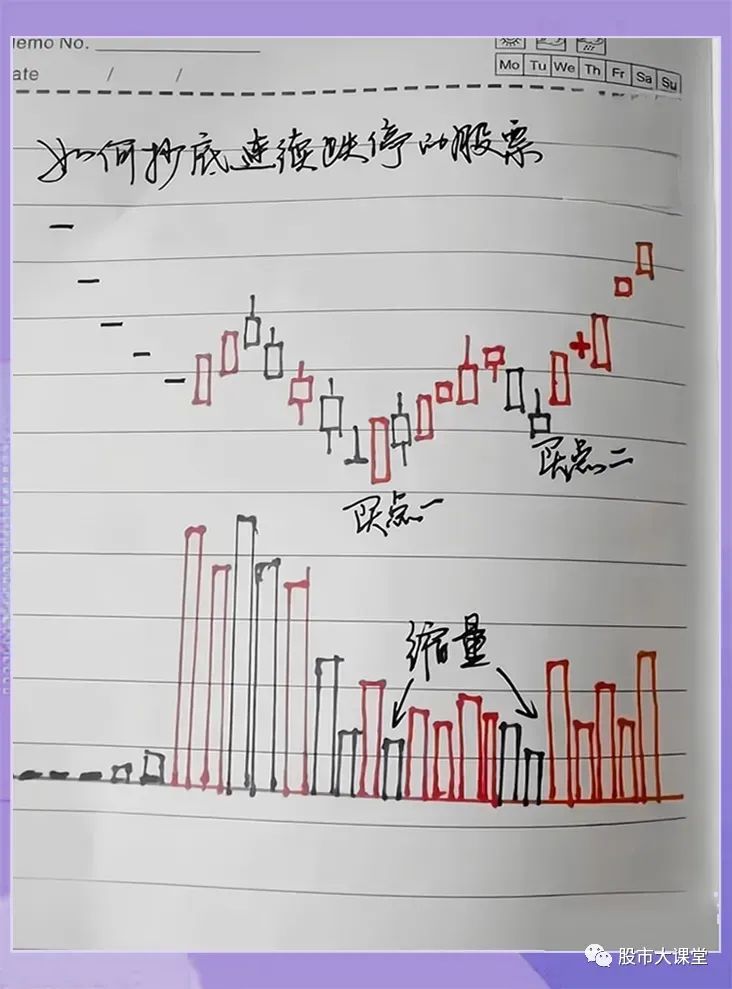 Memo No.
Mo Tu We Th Fr Sa Su
ate / /
如何抄底连续跌停的股票
买点二
买点一
缩量
股市大课堂